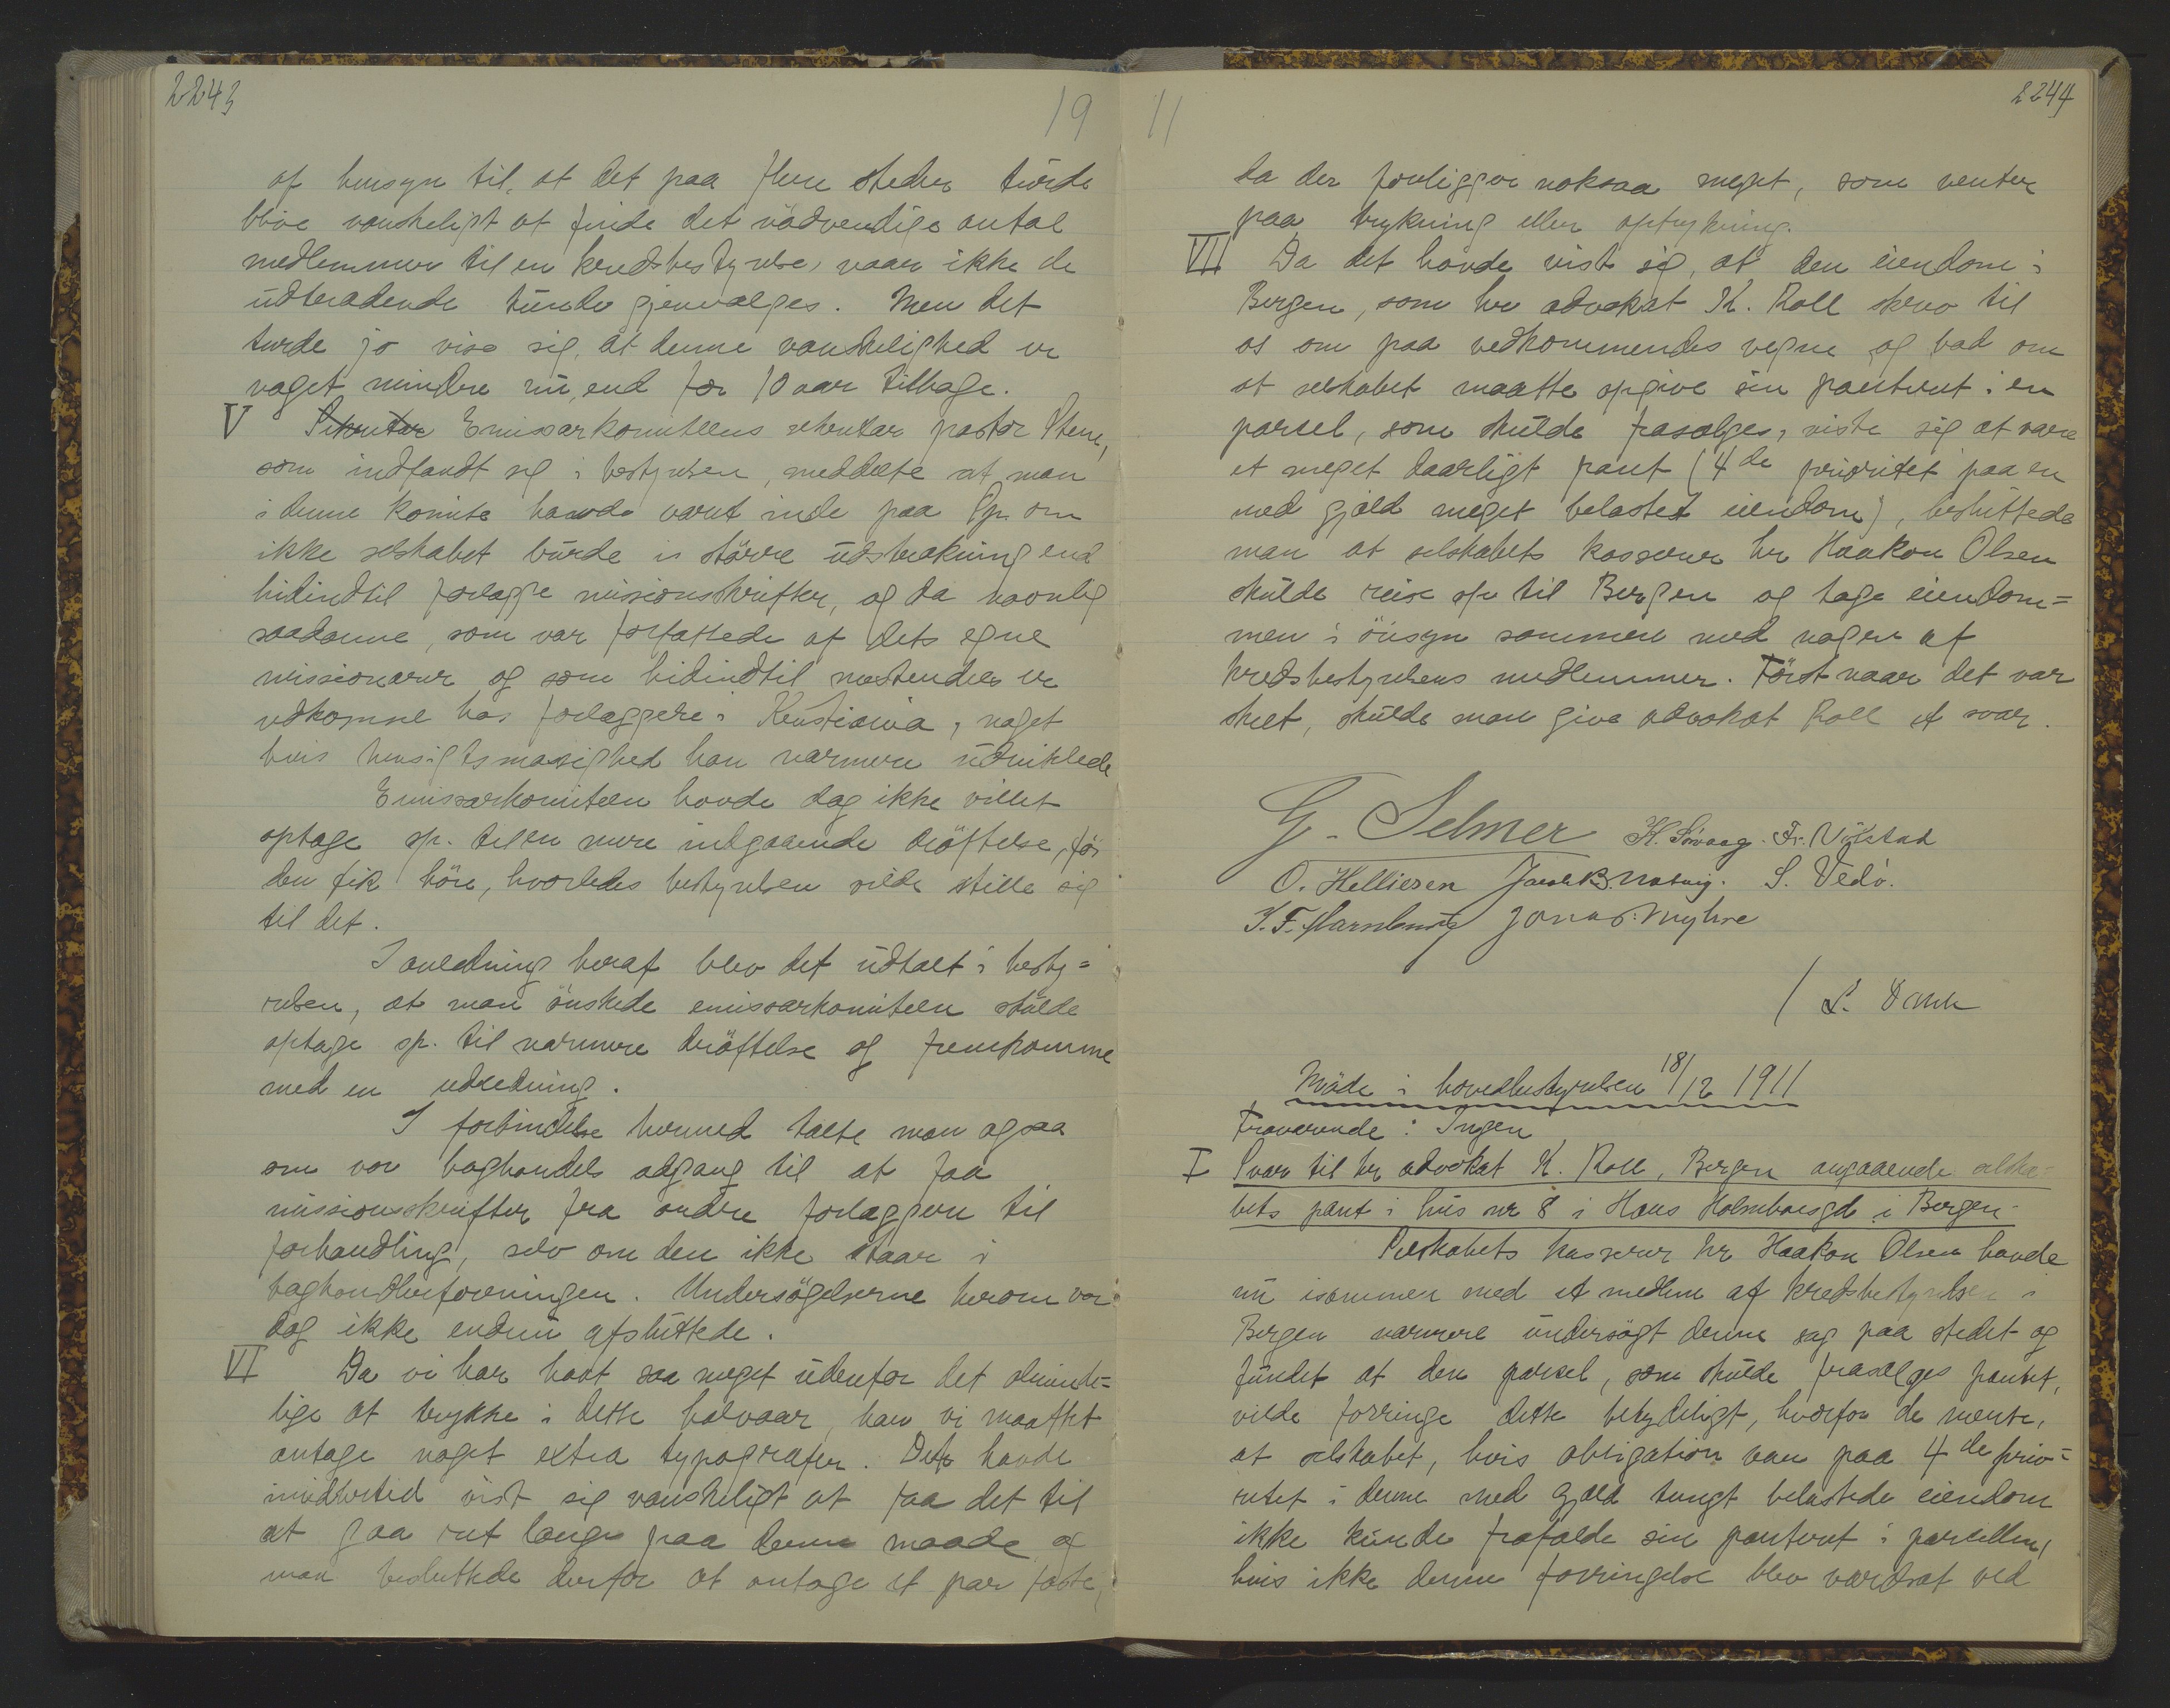 2243
19
af hensyn til, at det paa flere steder turde
blive vanskeligt at finde det nødvendige antal
medlemmer til en kredsbestyrelse, naar ikke de
udtrædende kunde gjenvælges. Men det
turde jo vise sig, at denne vanskelighed er
noget mindre nu, end for 10 aar tilbage.
V Sekretær Emissærkomiteens sekretær pastor Steen,
som indfandt sig i bestyrelsen, meddelte at man
i denne komite havde været inde paa Sp. om
ikke selskabet burde i større udstrækning end
hidindtil forlægge missionsskrifter, og da navnlig
saadanne, som var forfattede af dets egne
missionærer og som hidindtil mestendels er
udkomne hos forlæggere i Kristiania, noget
hvis hensigtsmæssighed han nærmere udviklede
Emissærkomiteen havde dog ikke villet
optage sp. til en mere indgaaende drøftelse, før
den fik høre, hvorledes bestyrelsen vilde stille sig
til det.
I anledning heraf blev det udtalt i besty=
relsen, at man ønskede emissærkomiteen skulde
optage sp. til nærmere drøftelse og fremkomme
med en udredning.
I forbindelse hermed talte man ogsaa
om vor boghandels adgang til at faa
missionsskrifter fra andre forlæggere til
forhandling, selv om den ikke staar i
boghandlerforeningen. Undersøgelserne herom var
dog ikke endnu afsluttede.
VI Da vi har havt saa meget udenfor det alminde=
lige at trykke i dette halvaar, har vi maattet
antage noget extra typografer. Det havde
imidlertid vist sig vanskeligt at faa det til
at gaa ret længe paa denne maade og
man besluttede derfor at antage et par faste,
11
2244
da der foreligger noksaa meget, som venter
paa trykning eller optrykning.
VII Da det havde vist sig, at den eiendom i
Bergen, som hr advokat K. Roll skrev til
os om paa vedkommendes vegne og bad om
at selskabet maatte opgive sin panteret i en
parsel, som skulde frasælges, viste sig at være
et meget daarligt pant (4de prioritet paa en
med gjæld meget belastet eiendom), besluttede
man at selskabets kasserer hr Haakon Olsen
skulde reise op til Bergen og tage eiendom=
men i øiesyn sammen med nogen af
kredsbestyrelsens medlemmer. Først naar det var
skeet, skulde man give advokat Roll et svar.
G. Selmer K. Sø­vaag. Fr. Vølstad
O. Helliesen Jacob B. Natvig. S. Vedø.
Jonas Myhre
/ L. Dahle
Møde i hovedbestyrelsen 18/12 1911
Fraværende: Ingen
I Svar til hr advokat K. Roll, Bergen angaaende selska=
bets pant i hus nr 8 i Hans Holmboesgd. i Bergen.
Selskabets kasserer hr Haakon Olsen havde
nu isammen med et medlem af kredsbestyrelsen i
Bergen nærmere undersøgt denne sag paa stedet og
fundet at den parsel, som skulde frasælges pantet,
vilde forringe dette betydeligt, hvorfor de mente,
at selskabet, hvis obligation var paa 4de prio=
ritet i denne med gjæld tungt belastede eiendom
ikke kunde frafalde sin panteret i parcellen,
hvis ikke denne forringelse blev værdsat ved